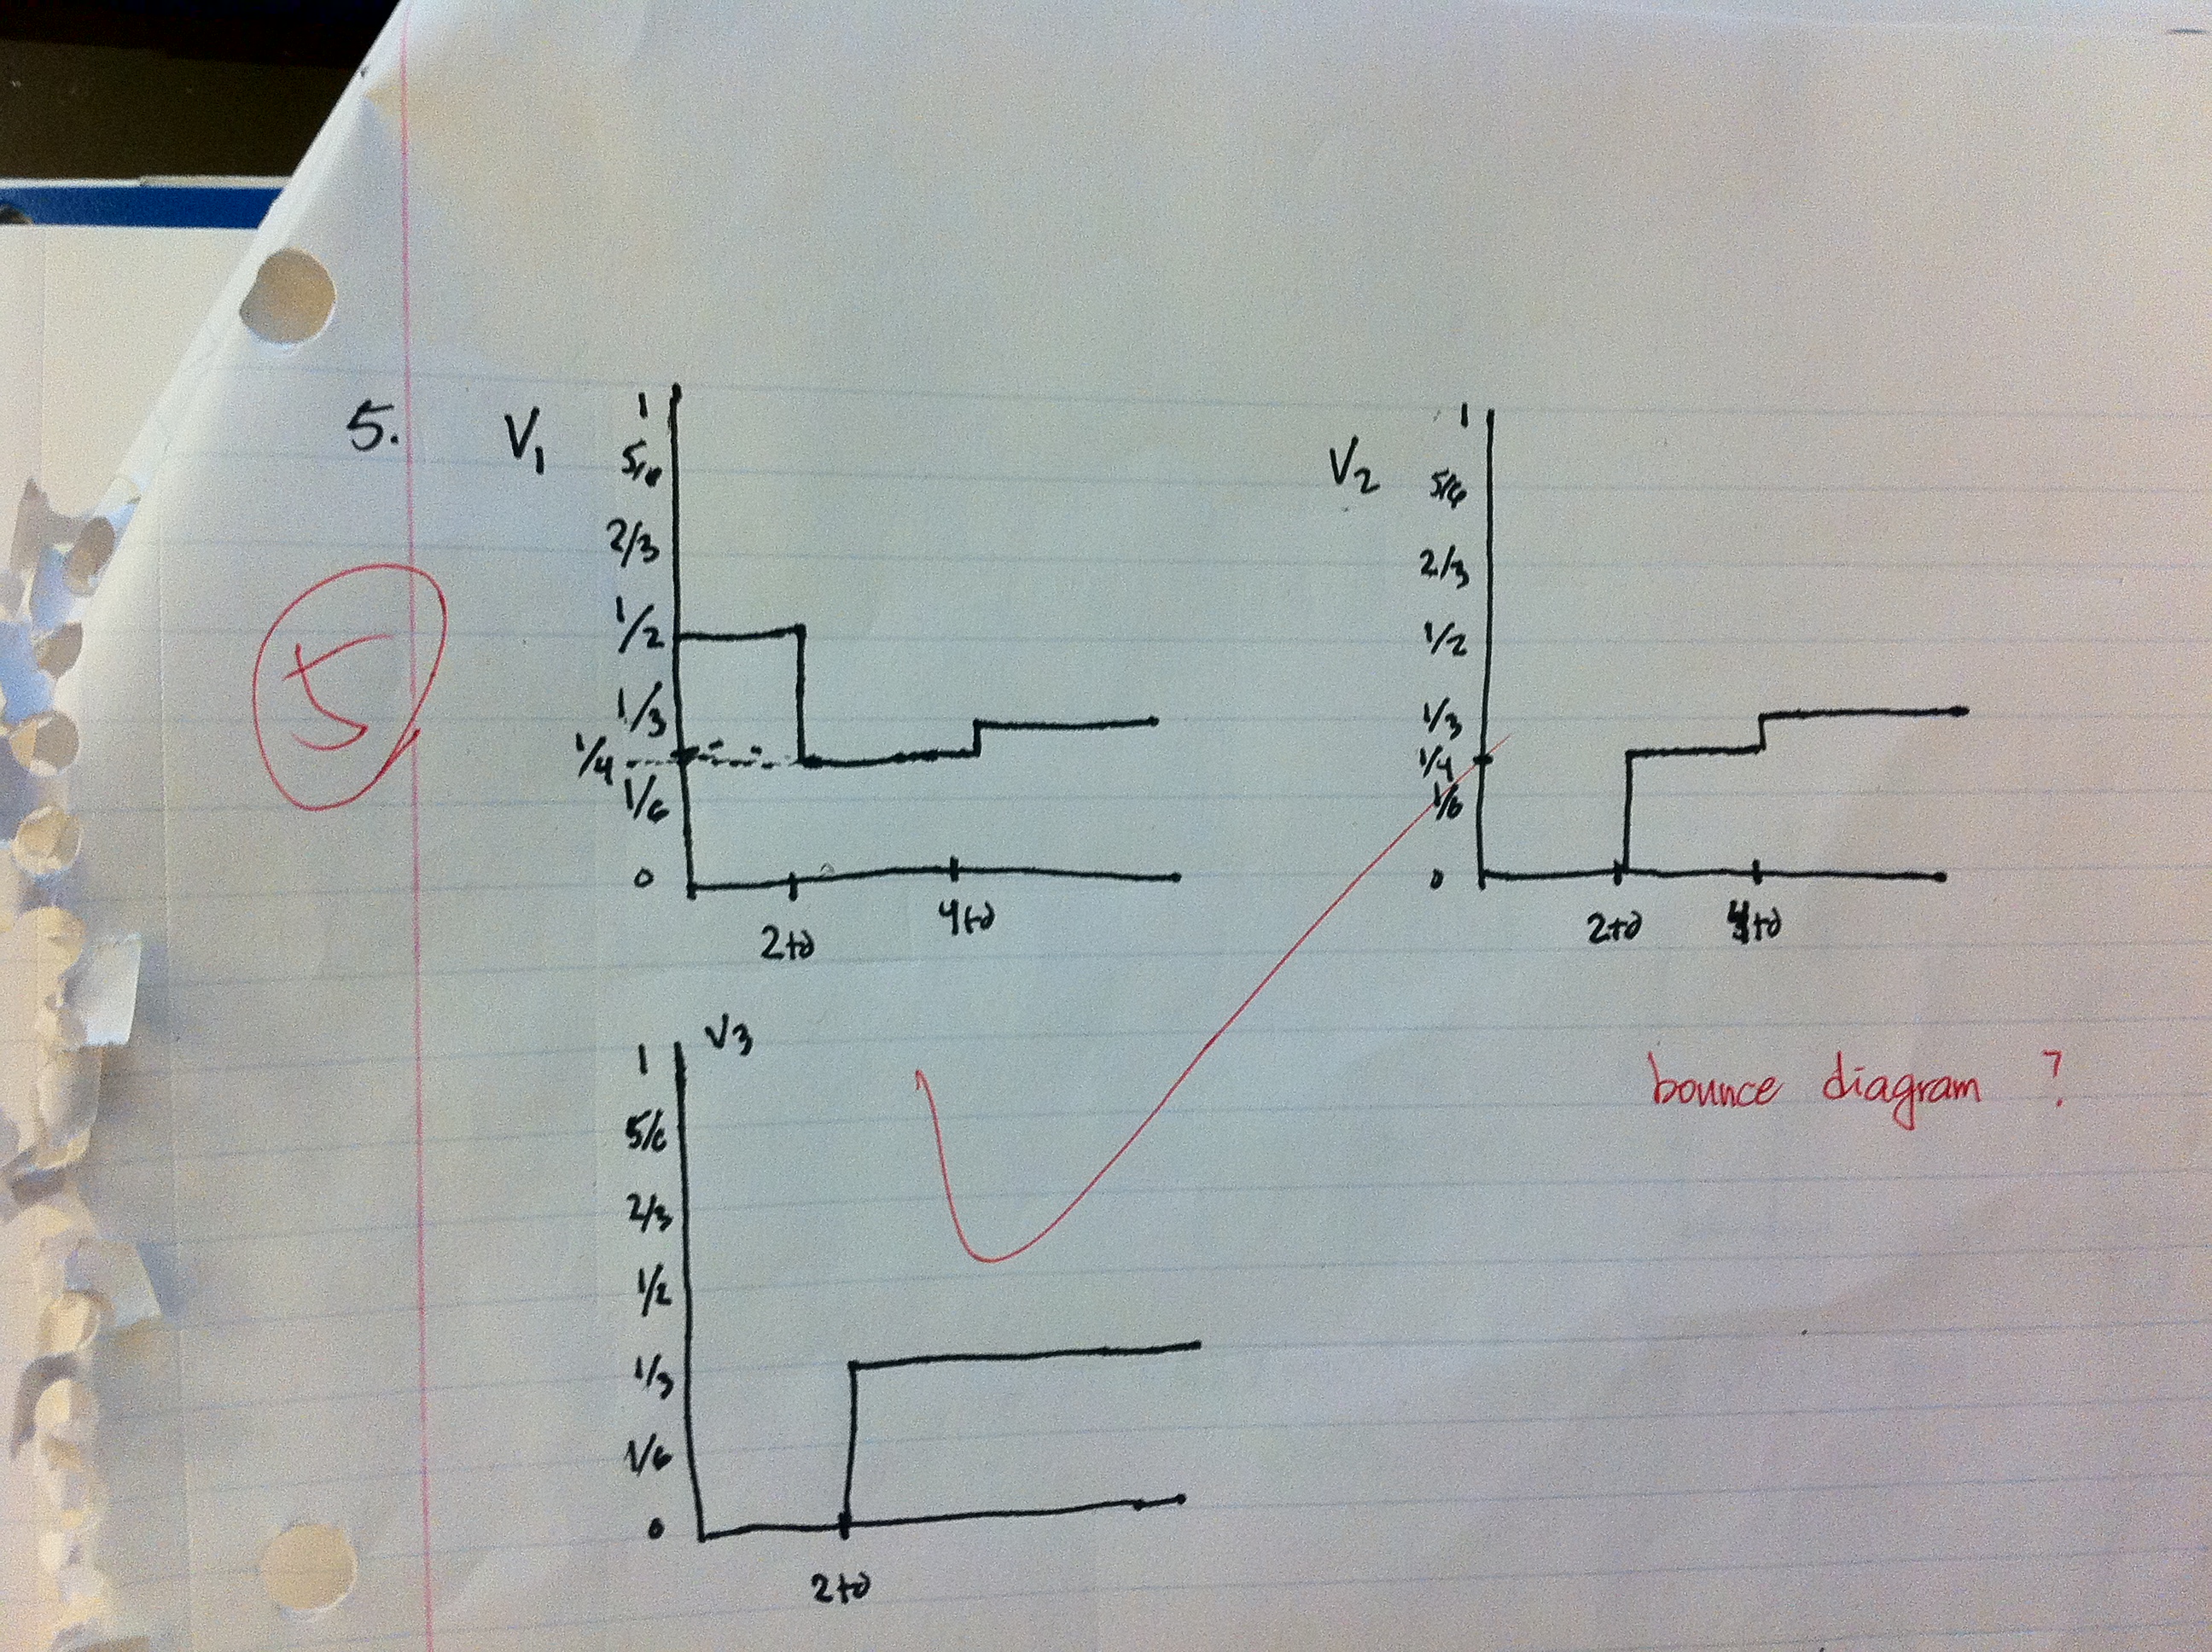 5.
5
V1
1
5/6
2/3
1/2
1/3
1/4
1/6
0
2td
4td
V2
1
5/6
2/3
1/2
1/3
1/4
1/6
0
2td
4td
V3
1
5/6
2/3
1/2
1/3
1/6
0
2td
bounce diagram ?